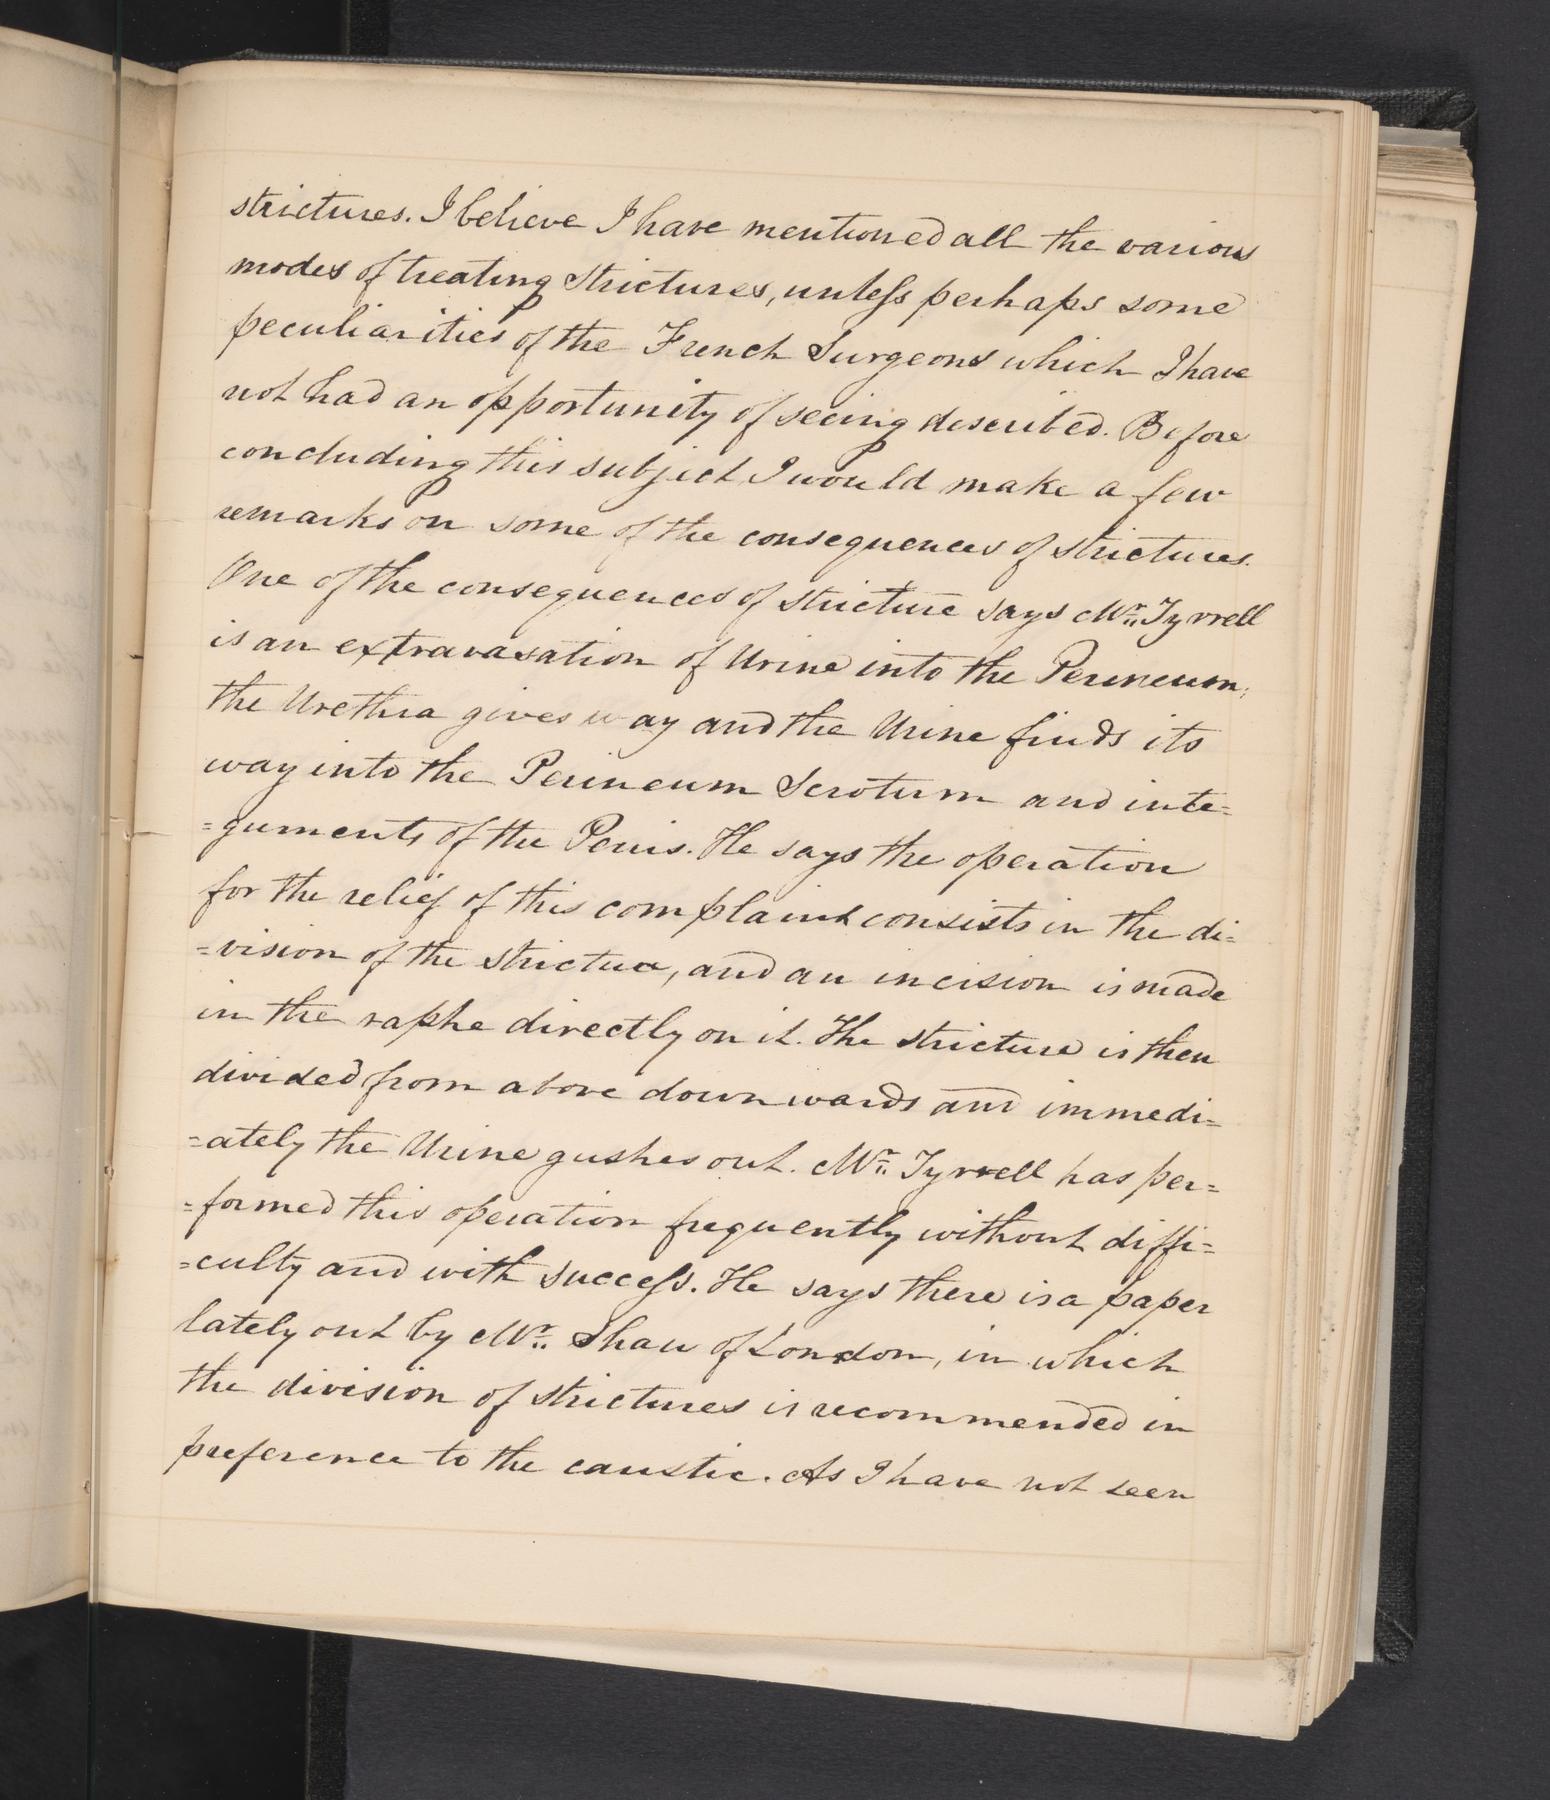 strictures. I believe I have mentioned all the various
modes of treating Strictures, unless perhaps some
peculiarities of the French Surgeons which I have
not had an opportunity of seeing described. Before
concluding this subject I would make a few
remarks on some of the consequences of strictures.
One of the consequences of stricture says Mr. Tyrrell
is an extravasation of Urine into the Perineum;
the Urethra gives way and the Urine finds its
way into the Perineum Scrotum and inte=
=guments of the Penis. He says the operation
for the relief of this complaint consists in the di=
=vision of the stricture, and an incision is made
in the raphe directly on it. The stricture is then
divided from above downwards and immedi=
=ately the Urine gushes out. Mr. Tyrrell has per=
=formed this operation frequently without diffi=
=culty and with success. He says there is a paper
lately out by Mr. Shaw of London, in which
the division of strictures is recommended in
preference to the caustic. As I have not seen